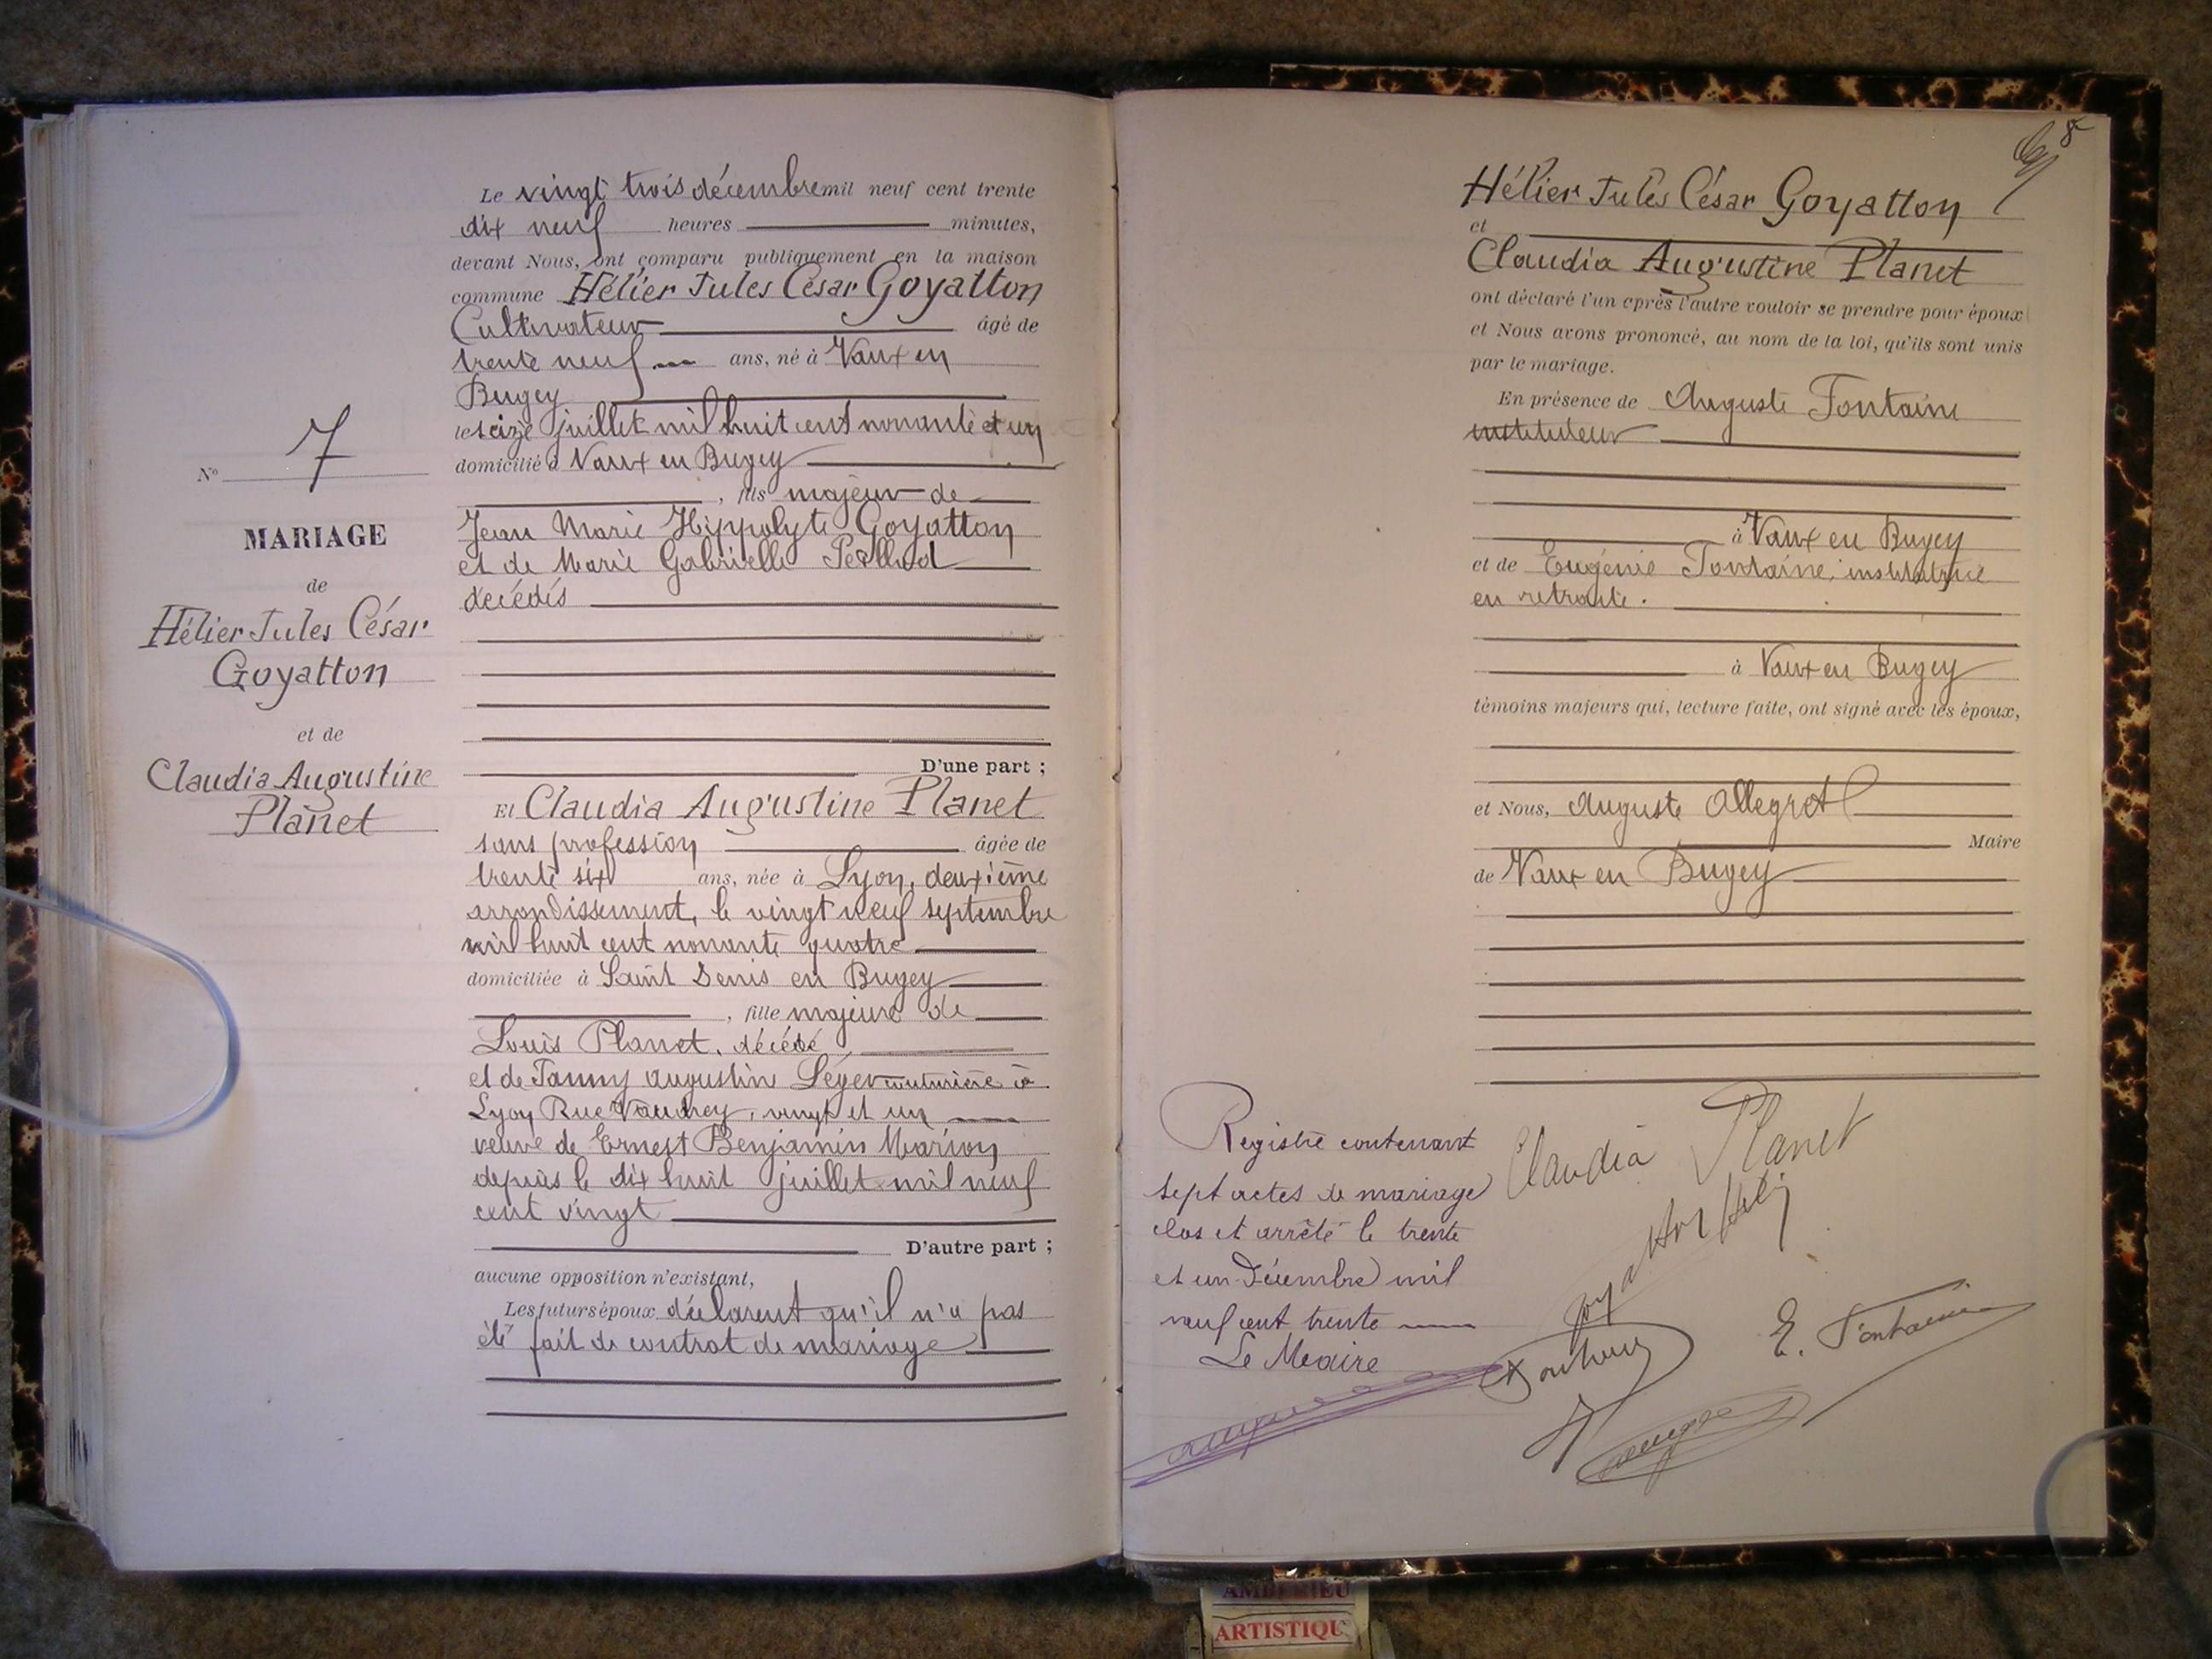 Le vingt trois décembre mil neuf cent trente
dix neuf heures minutes,
devant Nous, ont comparu publiquement en la maison
commune Hélier Jules César Goyatton
Cultivateur âgé de
trente neuf ans, né à Vaux en
Bugey
le seize juillet mil huit cent nonante et un
domicilié à Vaux en Bugey
, fils majeur de
Jean Marie Hippolyte Goyatton
et de Marie Gabrielle
décédés
D'une part ;
Et Claudia Augustine Planet
sans profession âgée de
trente six ans, née à Lyon, deuxième
arrondissement, le vingt neuf septembre
mil huit cent nonante quatre
domiciliée à Saint Denis en Bugey
, fille majeure de
Louis Planet, décédé
et de Fanny Augustine Léger couturière à
Lyon Rue Vaudrey, vingt et un
veuve de Ernest Benjamin Marion
depuis le dix huit juillet mil neuf
cent vingt
D'autre part ;
aucune opposition n'existant,
Les futurs époux déclarent qu'il n'a pas
été fait de contrat de mariage
N° 7
MARIAGE
de
Hélier Jules César
Goyatton
et de
Claudia Augustine
Planet
8
Hélier Jules César Goyatton
et
Claudia Augustine Planet
ont déclaré l'un après l'autre vouloir se prendre pour époux
et Nous avons prononcé, au nom de la loi, qu'ils sont unis
par le mariage.
En présence de Auguste Fontaine
instituteur
à Vaux en Bugey
et de Eugénie Fontaine, institutrice
en retraite.
à Vaux en Bugey
témoins majeurs qui, lecture faite, ont signé avec les époux,
et Nous, Auguste Allegret
Maire
de Vaux en Bugey
Registre contenant
sept actes de mariage
clos et arrêté le trente
et un Décembre mil
neuf cent trente
Le Maire
Claudia Planet
E. Fontaine
AMBERIEU
ARTISTIQU